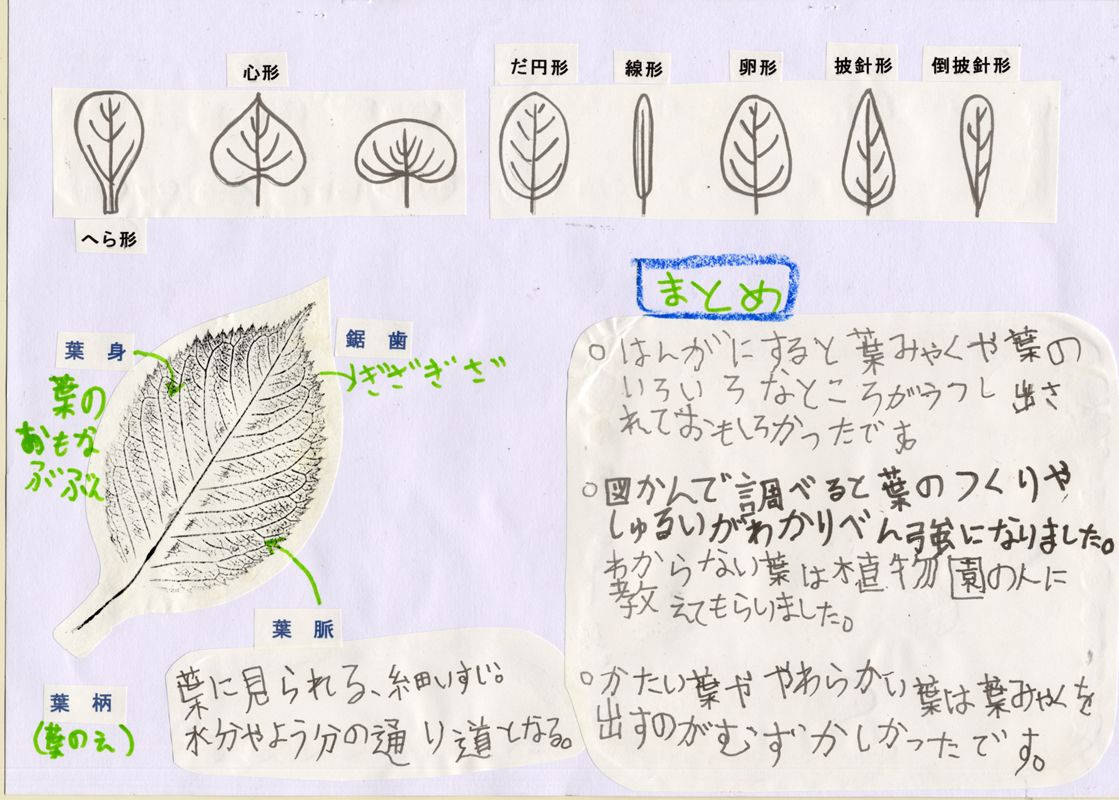 心形
へら形
だ円形
線形
卵形
披針形
倒披針形
葉身
葉の
おもな
ぶぶん
鋸歯
ぎざぎざ
葉脈
葉に見られる、細いすじ。
水分やよう分の通り道となる。
葉柄
(葉のえ)
まとめ
○はんがにすると葉みゃくや葉の
いろいろなところがうつし出さ
れておもしろかったです。
○図かんで調べると葉のつくりや
しゅるいがわかりべん強になりました。
わからない葉は植物園の人に
教えてもらいました。
○かたい葉ややわらかい葉は葉みゃくを
出すのがむずかしかったです。